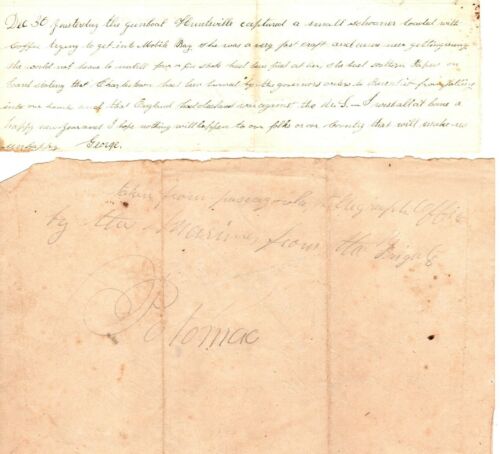 Dec 30 yesterday the gunboat Huntsville captured a small schooner loaded with
Coffee trying to get into Mobile Bay she was a very fast craft and
she would not heave to untill for a few shots had been fired at her, she had southern Papers on
board stating that Charlestown had been burned by the governors order to prevent it from falling
into our hands and that England had declared war against the U.S. I wish all at home a
happy new year and I hope nothing will happen to our folks or our County that will make us
unhappy George.
taken from pensacola telegraph Office
by the Marines from the Frigate
Potomac